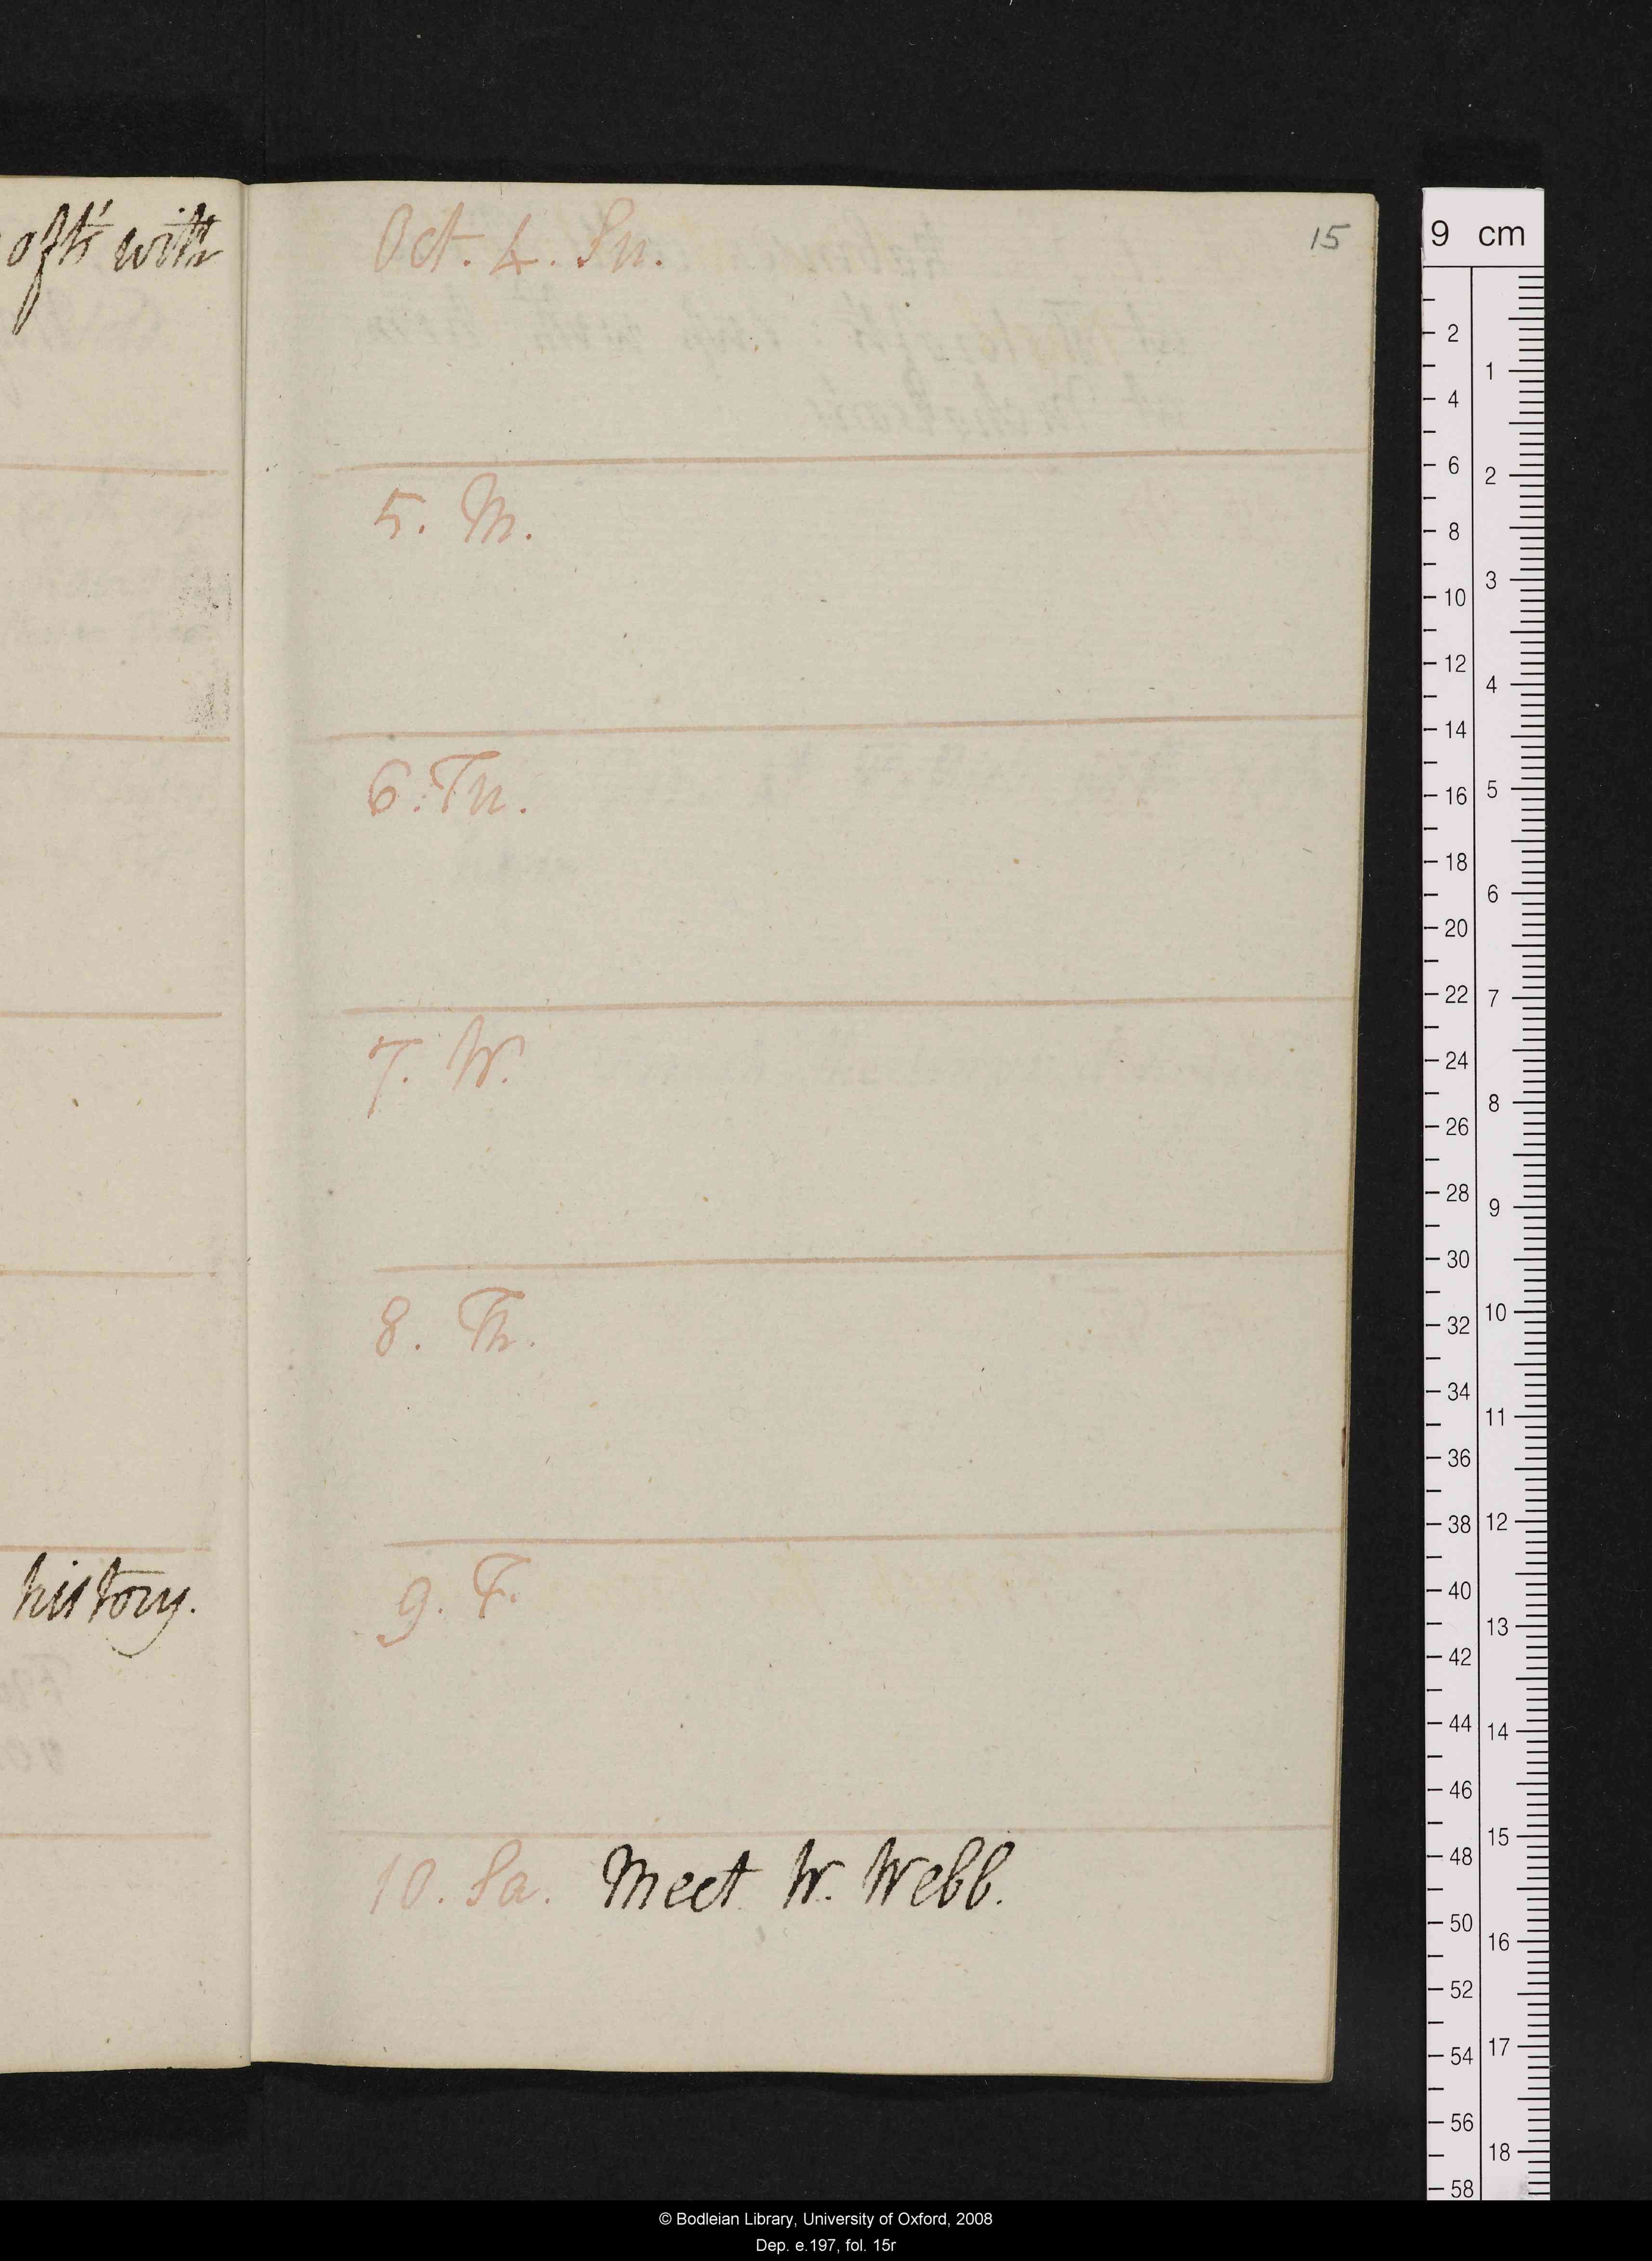 oft' with
history.
Oct. 4. Su.
15
5. M.
6. Tu.
7. W.
8. Th.
9. F.
10. Sa. Meet W. Webb.
9 cm
2
4
6
8
10
12
14
16
18
20
22
24
26
28
30
32
34
36
38
40
42
44
46
48
50
52
54
56
58
1
2
3
4
5
6
7
8
9
10
11
12
13
14
15
16
17
18
© Bodleian Library, University of Oxford, 2008
Dep. e.197, fol. 15r